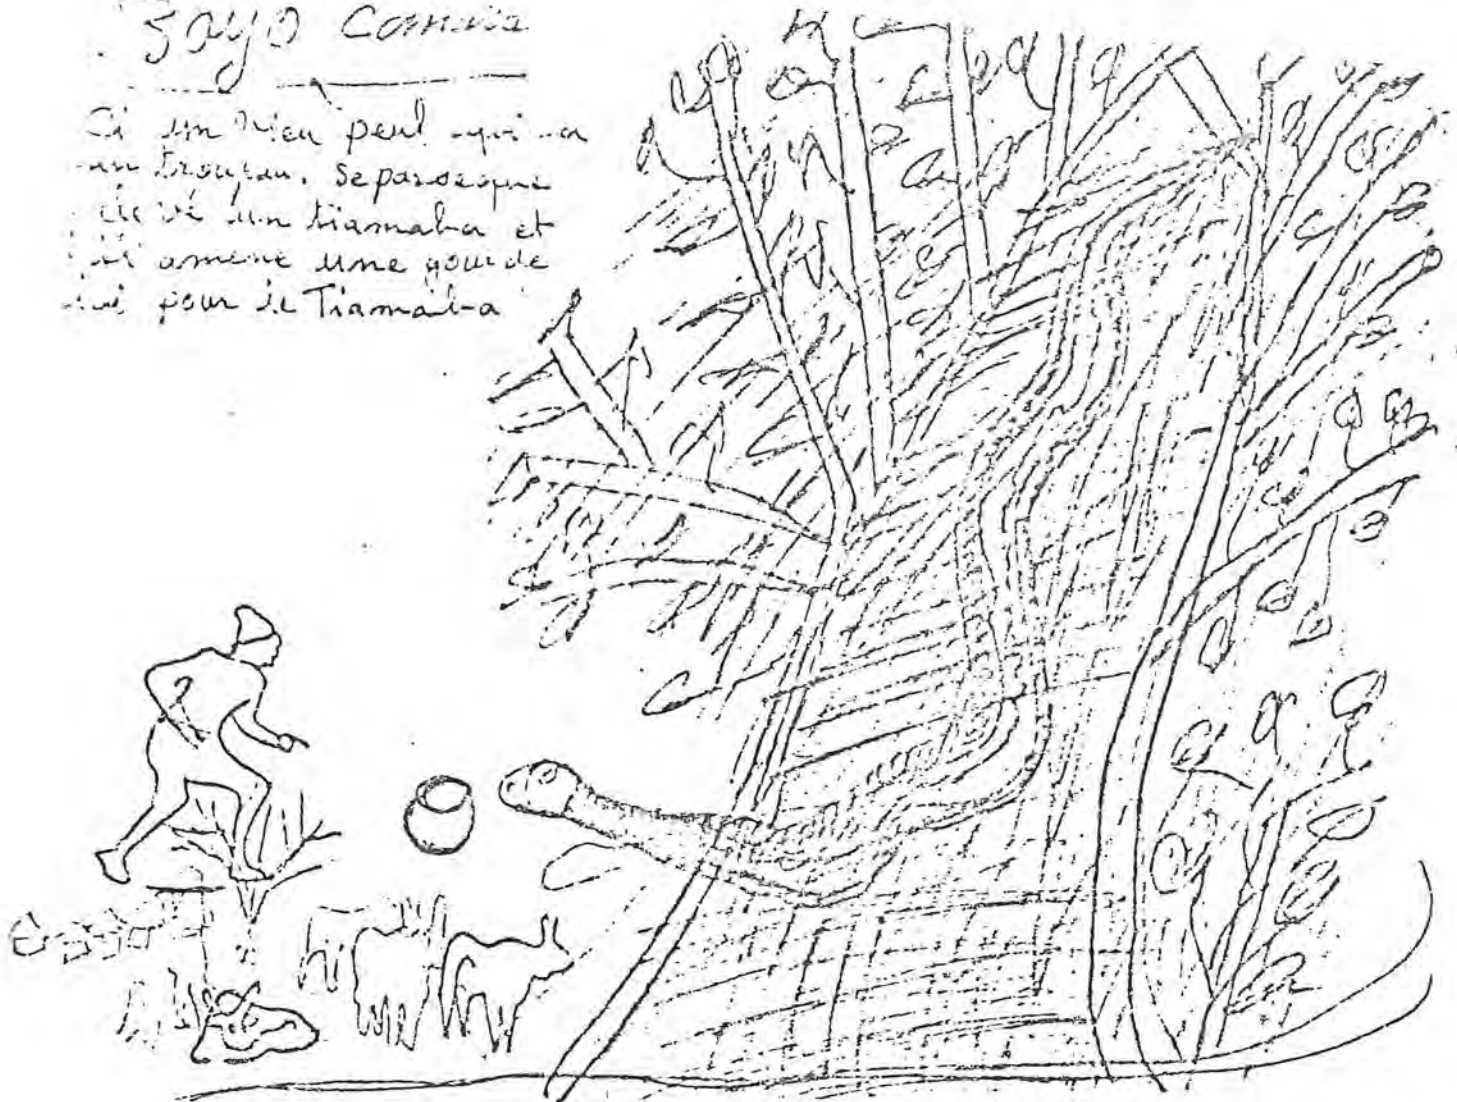 Zoyo Camara
Ci un vieu peul qui a
un troupau. Separseque
élevé un tiamaba et
amene une gourde
pour le Tiamaba